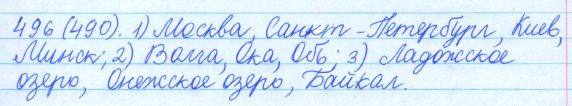 496 (490). 1) Москва, Санкт-Петербург, Киев,
Минск; 2) Волга, Ока, Обь; 3) Ладожское
озеро, Онежское озеро, Байкал.